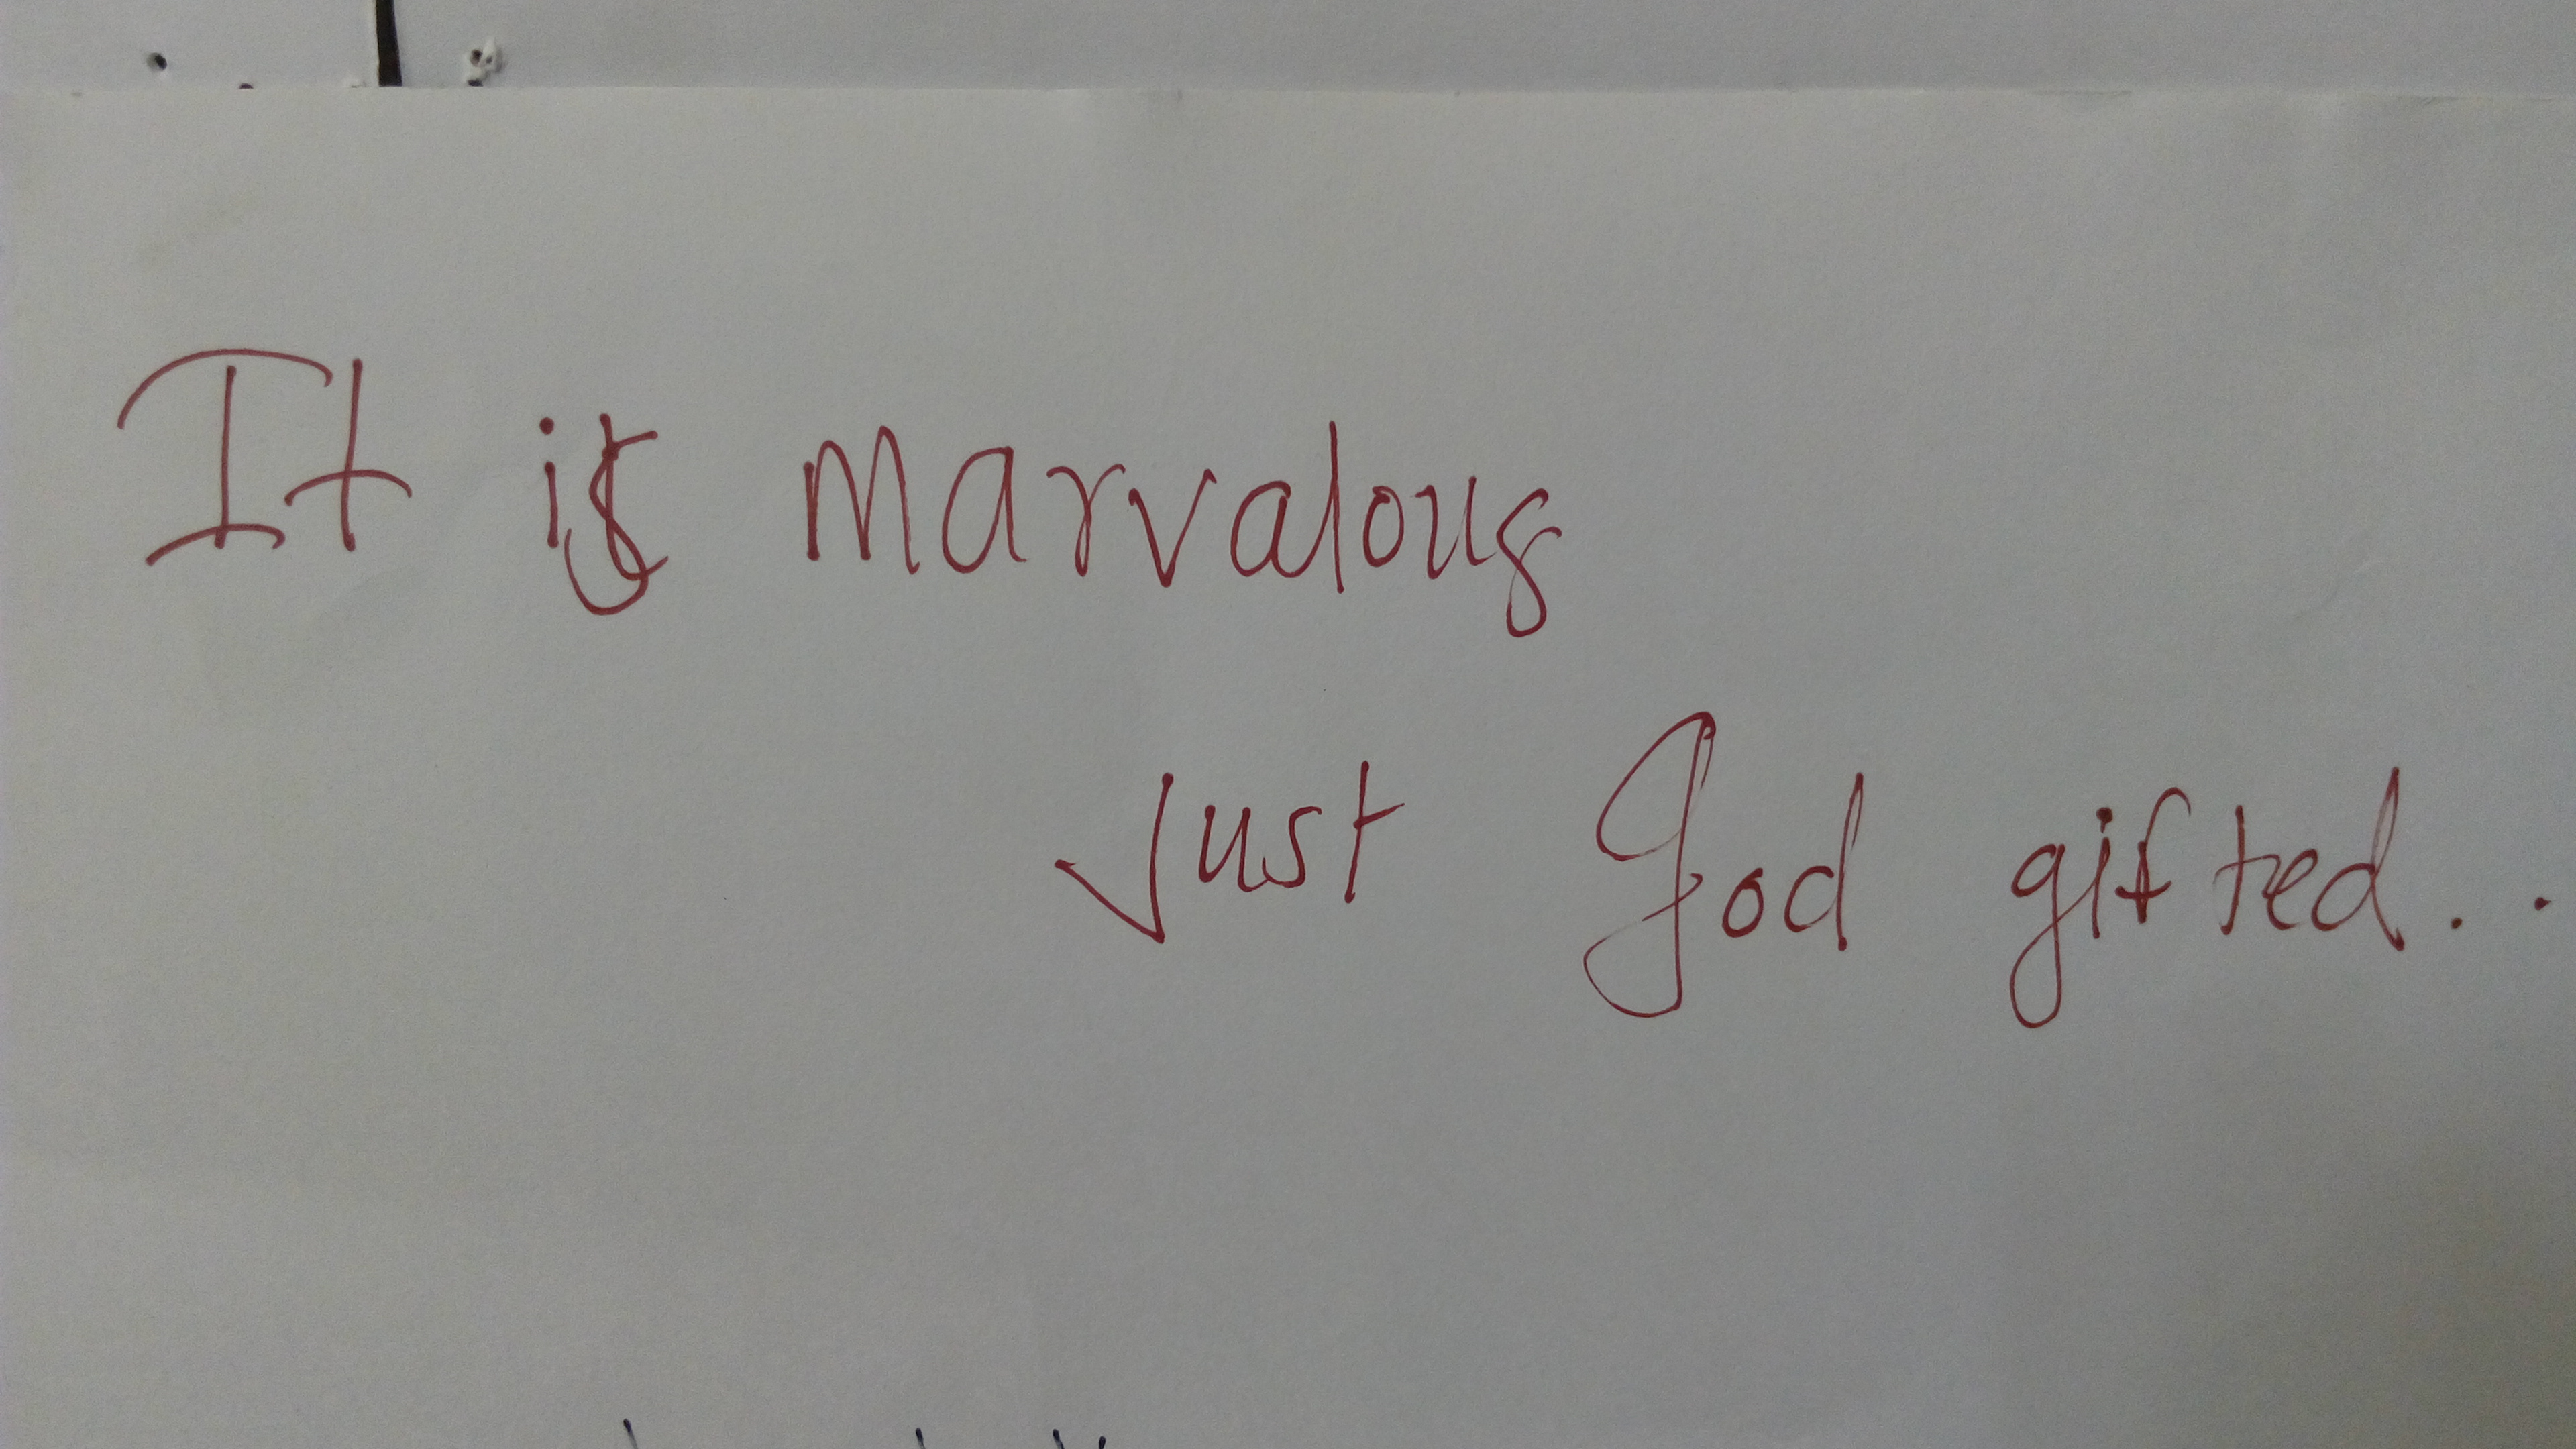 It is Marvalous
Just God gifted..